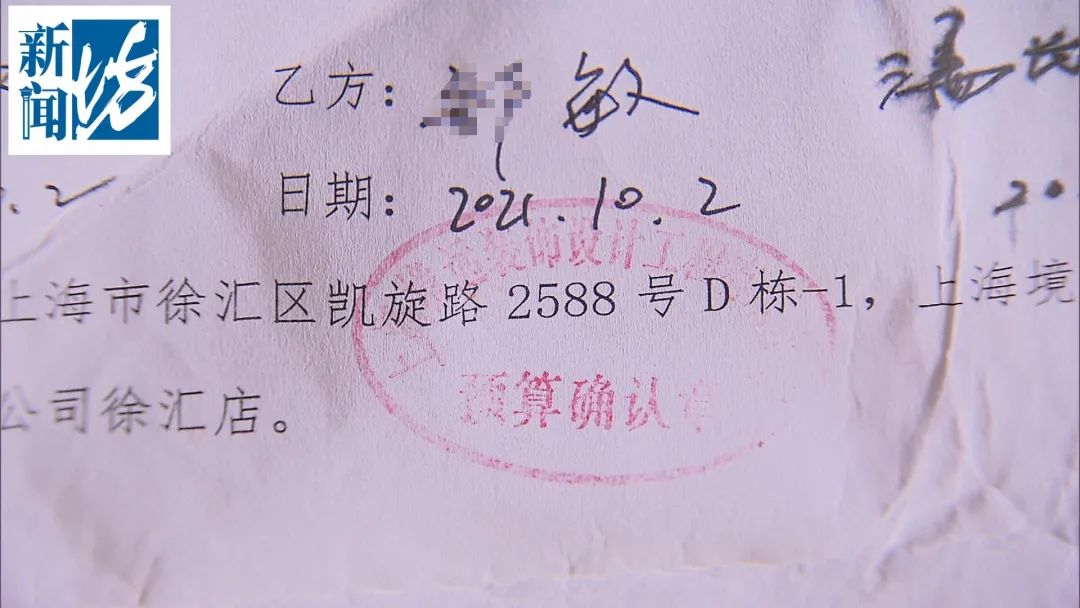 新闻坊
乙方： 敏
日期：2021.10.2
.2
20
上海市徐汇区凯旋路 2588 号 D 栋-1，上海境
公司徐汇店。
装饰设计工程
预算确认章